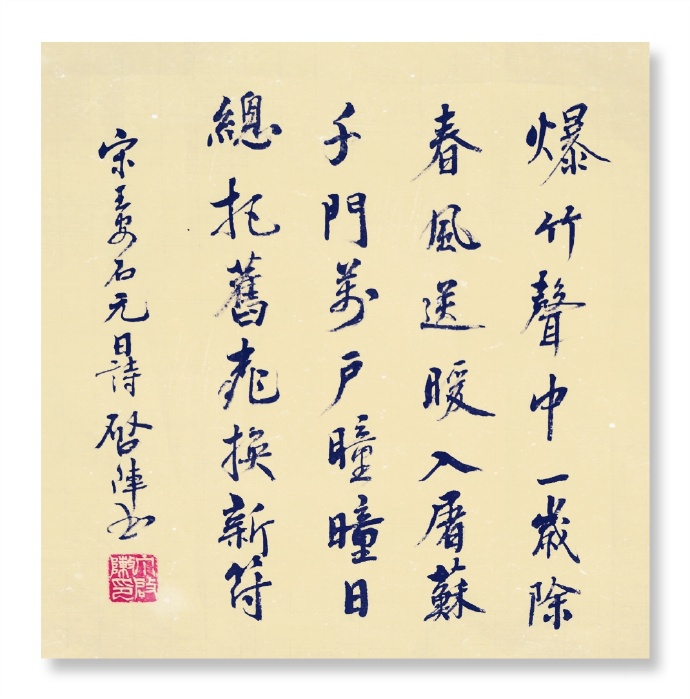 爆竹聲中一歲除
春風送暖入屠蘇
千門萬戶曈曈日
總把舊桃換新符
宋王安石元日詩 啟陣書